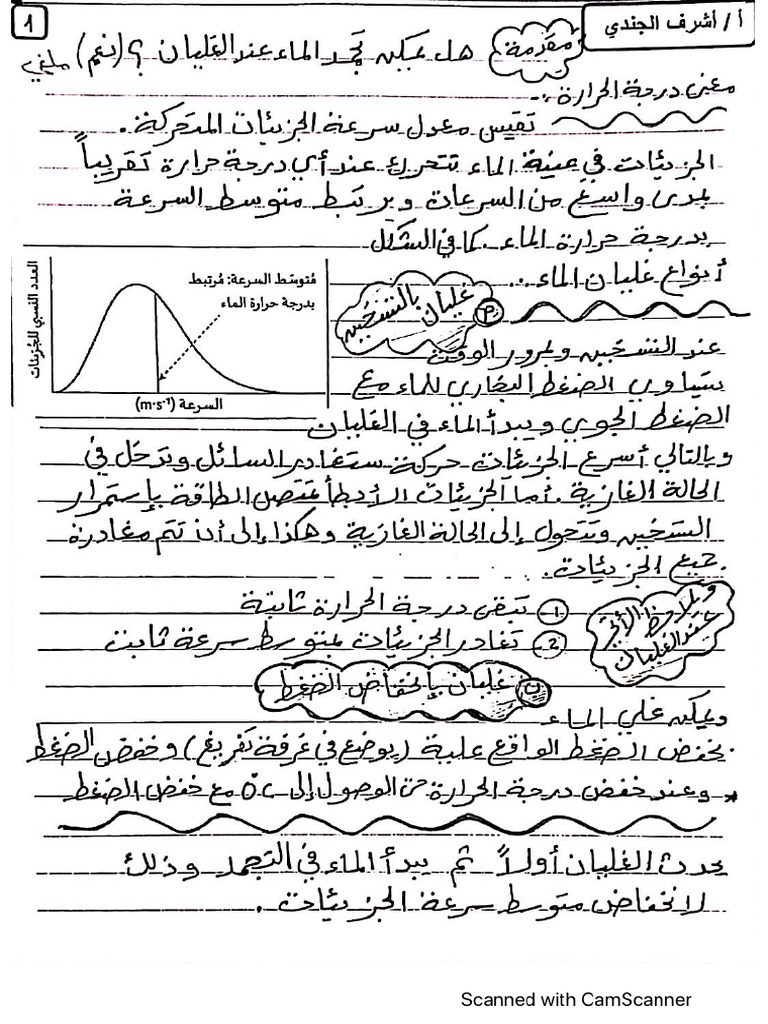 أ / أشرف الجندي
1
مقدمة
هل يمكن تجمد الماء عند الغليان ؟ (نعم)
معنى درجة الحرارة ..
تقيس معدل سرعة الجزيئات المتحركة .
الجزيئات في عينة الماء تتحرك عند أي درجة حرارة تقريباً
بمدى واسع من السرعات ويرتبط متوسط السرعة
بدرجة حرارة الماء . كما في الشكل
أنواع غليان الماء ..
العدد النسبي للجزيئات
مُتوسِّط السرعة: مُرتبط
بدرجة حرارة الماء
السرعة (m·s⁻¹)
غليان بالتسخين
عند التسخين وبمرور الوقت
يتساوى الضغط البخاري للماء مع
الضغط الجوي ويبدأ الماء في الغليان
وبالتالي أسرع الجزيئات حركة ستغادر السائل وتدخل في
الحالة الغازية . أما الجزيئات الأبطأ تمتص الطاقة بإستمرار
التسخين وتتحول إلى الحالة الغازية وهكذا إلى أن تتم مغادرة
جميع الجزيئات .
عند الغليان
1- تبقى درجة الحرارة ثابتة
2- تغادر الجزيئات بمتوسط سرعة ثابت
ب غليان بإنخفاض الضغط
ويمكن غلي الماء
بخفض الضغط الواقع عليه (يوضع في غرفة تفريغ) وخفض الضغط
* وعند خفض درجة الحرارة حتى الوصول إلى 0℃ مع خفض الضغط
يحدث الغليان أولاً ثم يبدأ الماء في التجمد وذلك
لانخفاض متوسط سرعة الجزيئات .
Scanned with CamScanner